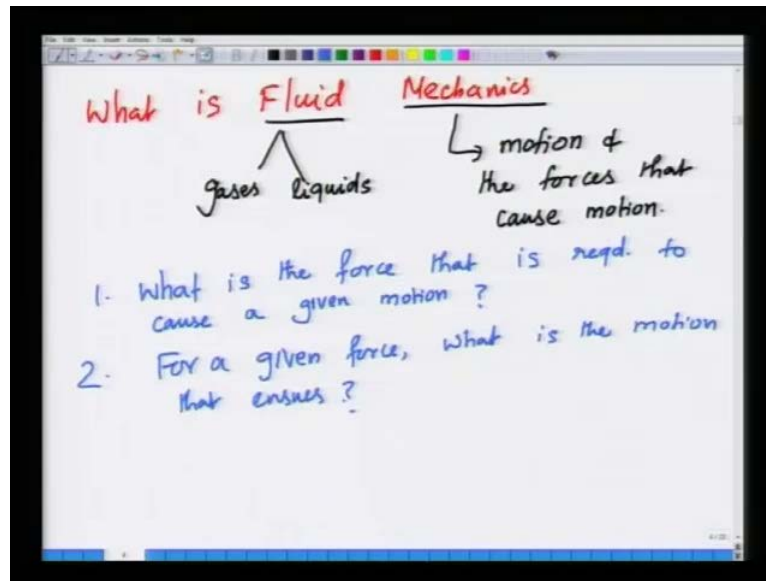 File Edit View Insert Actions Tools Help
What is Fluid Mechanics
gases liquids
motion &
the forces that
cause motion.
1. What is the force that is reqd. to
cause a given motion ?
2. For a given force, what is the motion
that ensues ?